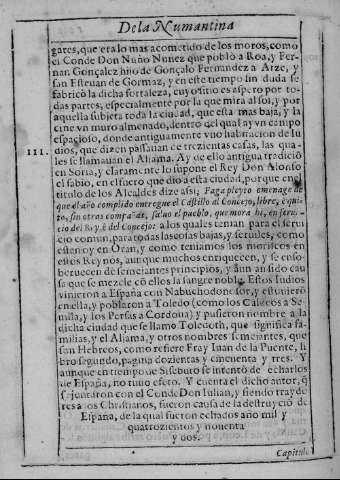 De la Numantina
gares, que era lo mas acometido de los moros, como
el Conde Don Nuño Nunez que poblò a Roa, y Fer-
nan Gonçalez hijo de Gonçalo Fernandez a Aize, y
san Esteuan de Gormaz, y en este tiempo sin duda se
fabricò la dicha fortaleza, cuyo sitio es aspero por to-
das partes, especialmente por la que mira al sol, y por
aquella subjeta toda la ciudad, que esta mas baja, y la
ciñe vn muro almenado, dentro del qual ay vn campo
espacioso, donde antiguamente vuo habitacion de Iu
dios, que dizen passauan de trezientas casas, las qua-
les se llamauan el Aljama. Ay de ello antigua tradiciō
III. en Soria, y claramente lo supone el Rey Don Alonso
el sabio, en el fuero que dio a esta ciudad, porque en el
titulo de los Alcaldes dize assi; Faga pleyto emenage de
que el año complido entregue el Castillo al Concejo, libre, e qui-
to, sin otras compañas, saluo el pueblo, que mora hi, en serui-
cio del Rey, è del Concejo: a los quales tenian para el serui
cio comun, para todas las cosas bajas, y seruiles, como
estan oy en Oran, y como teniamos los moriscos en
estos Reynos, aunque muchos enriquecen, y se enso-
beruecen de semejantes principios, y aun an sido cau
sa que se mezcle cō ellos la sangre noble. Estos Iudios
vinieron a España con Nabuchodonosor, y estuuierō
en ella, y poblaron a Toledo (como los Caldeos a Se-
uilla, y los Persas a Cordoua) y pusieron nombre a la
dicha ciudad que se llamo Toledoth, que significa fa-
milias, y el Aljama, y otros nombres semejantes, que
san Hebreos, como refiere Fray Iuan de la Puente, li
bro segundo, pagina dozientas y cincuenta y tres. Y
aunque en tiempo de Sisebuto se intentò de echarlos
de España, no tuuo efeto. Y cuenta el dicho autor, q̄
se juntaron con el Conde Don Iulian, y siendo trayde
res a los Christianos, fueron causa de la destruyciō de
España, de la qual fueron echados año mil y
quatrozientos y nouenta
y dos.
Capitulo